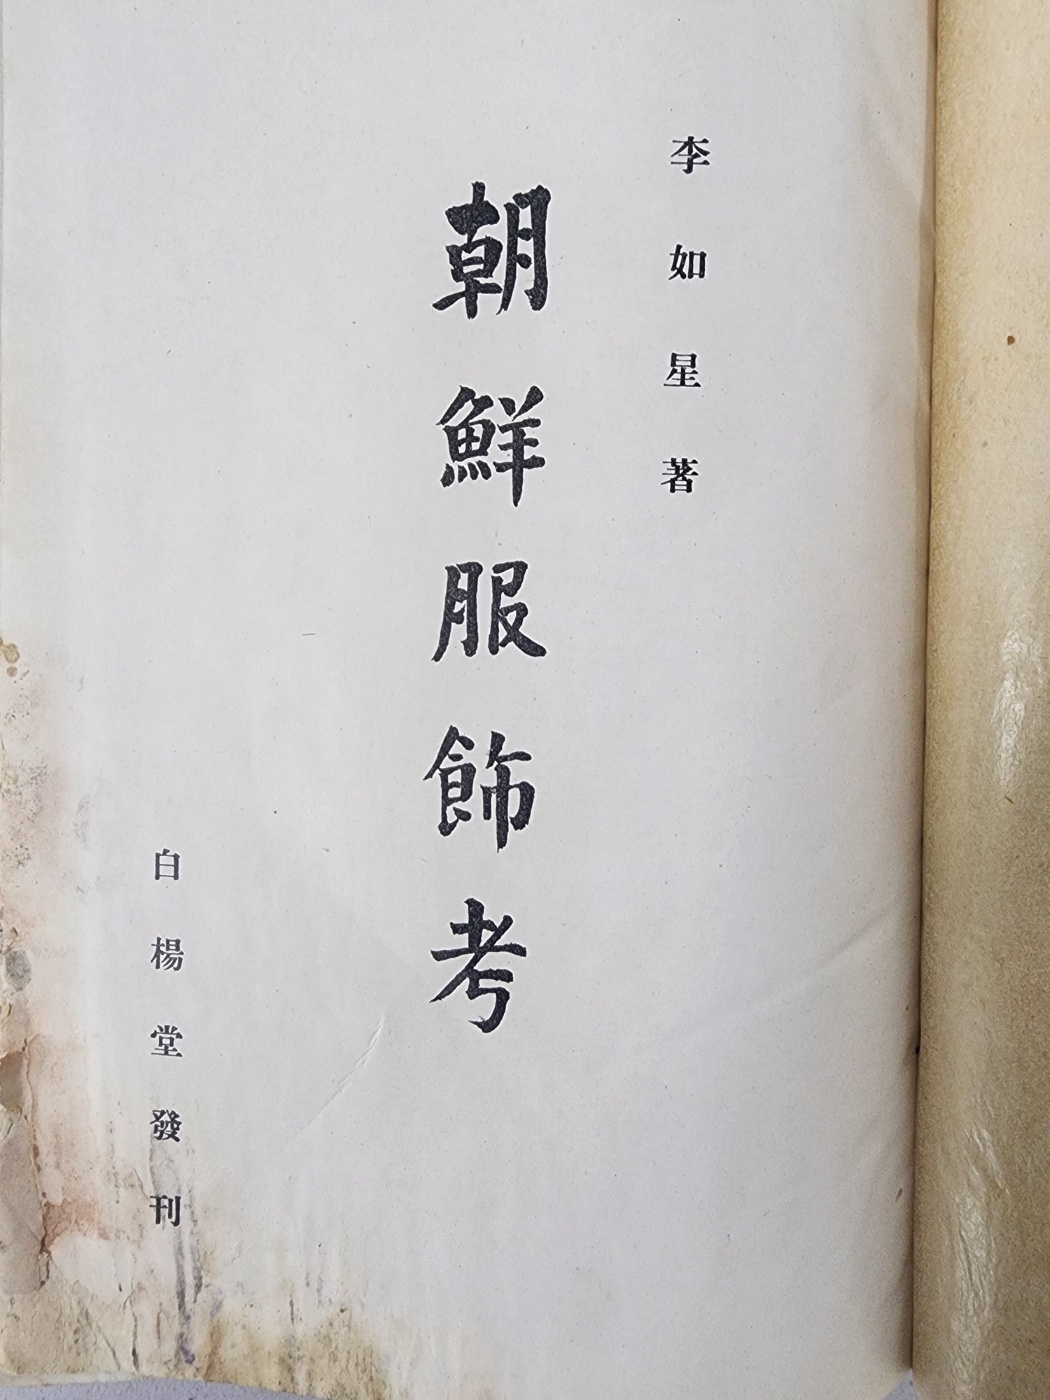 李如星著
朝鮮服飾考
白楊堂發刊